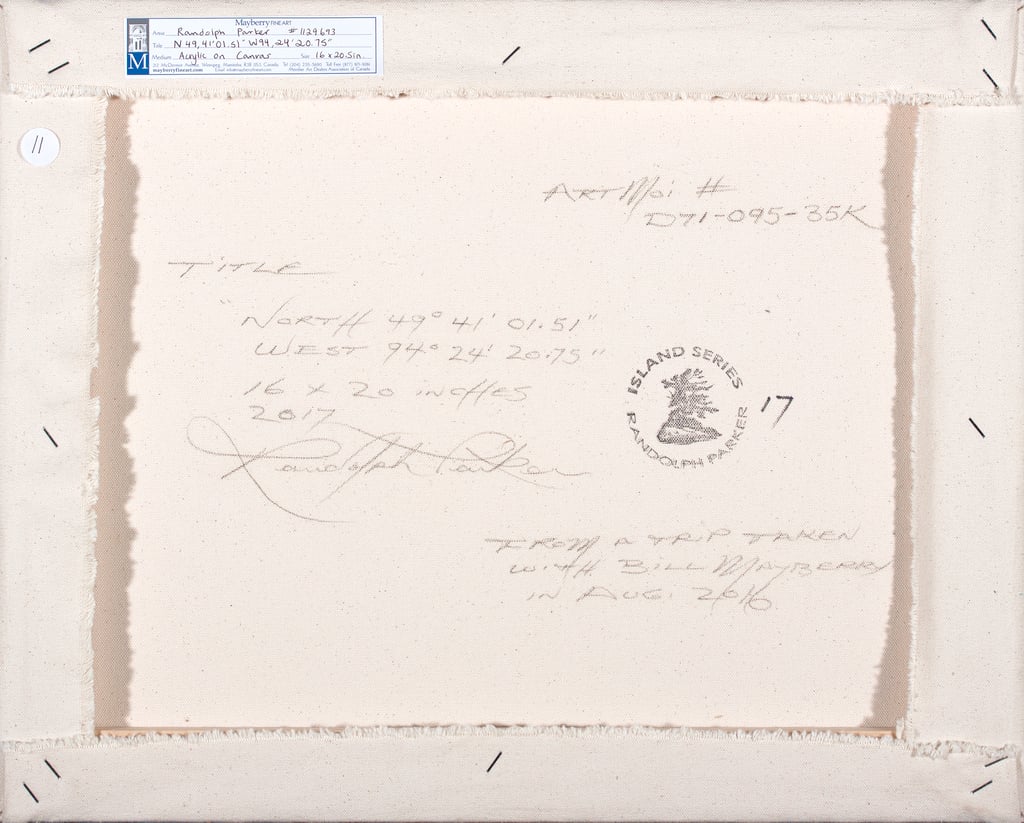 Mayberry FINE ART
Artist Randolph Parker #1129693
Title N 49, 41' 01.51" W 94, 24' 20.75"
Medium Acrylic on Canvas Size 16 x 20.5in.
212 McDermot Avenue, Winnipeg, Manitoba, R3B 0S3, Canada
mayberryfineart.com Member Art Dealers Association of Canada
M
11
ARTMOI #
D71-095-35K
TITLE
"NORTH 49° 41' 01.51"
WEST 94° 24' 20.75"
16 X 20 INCHES
2017
Randolph Parker
ISLAND SERIES
RANDOLPH PARKER
17
FROM A TRIP TAKEN
WITH BILL MAYBERRY
IN AUG. 2016